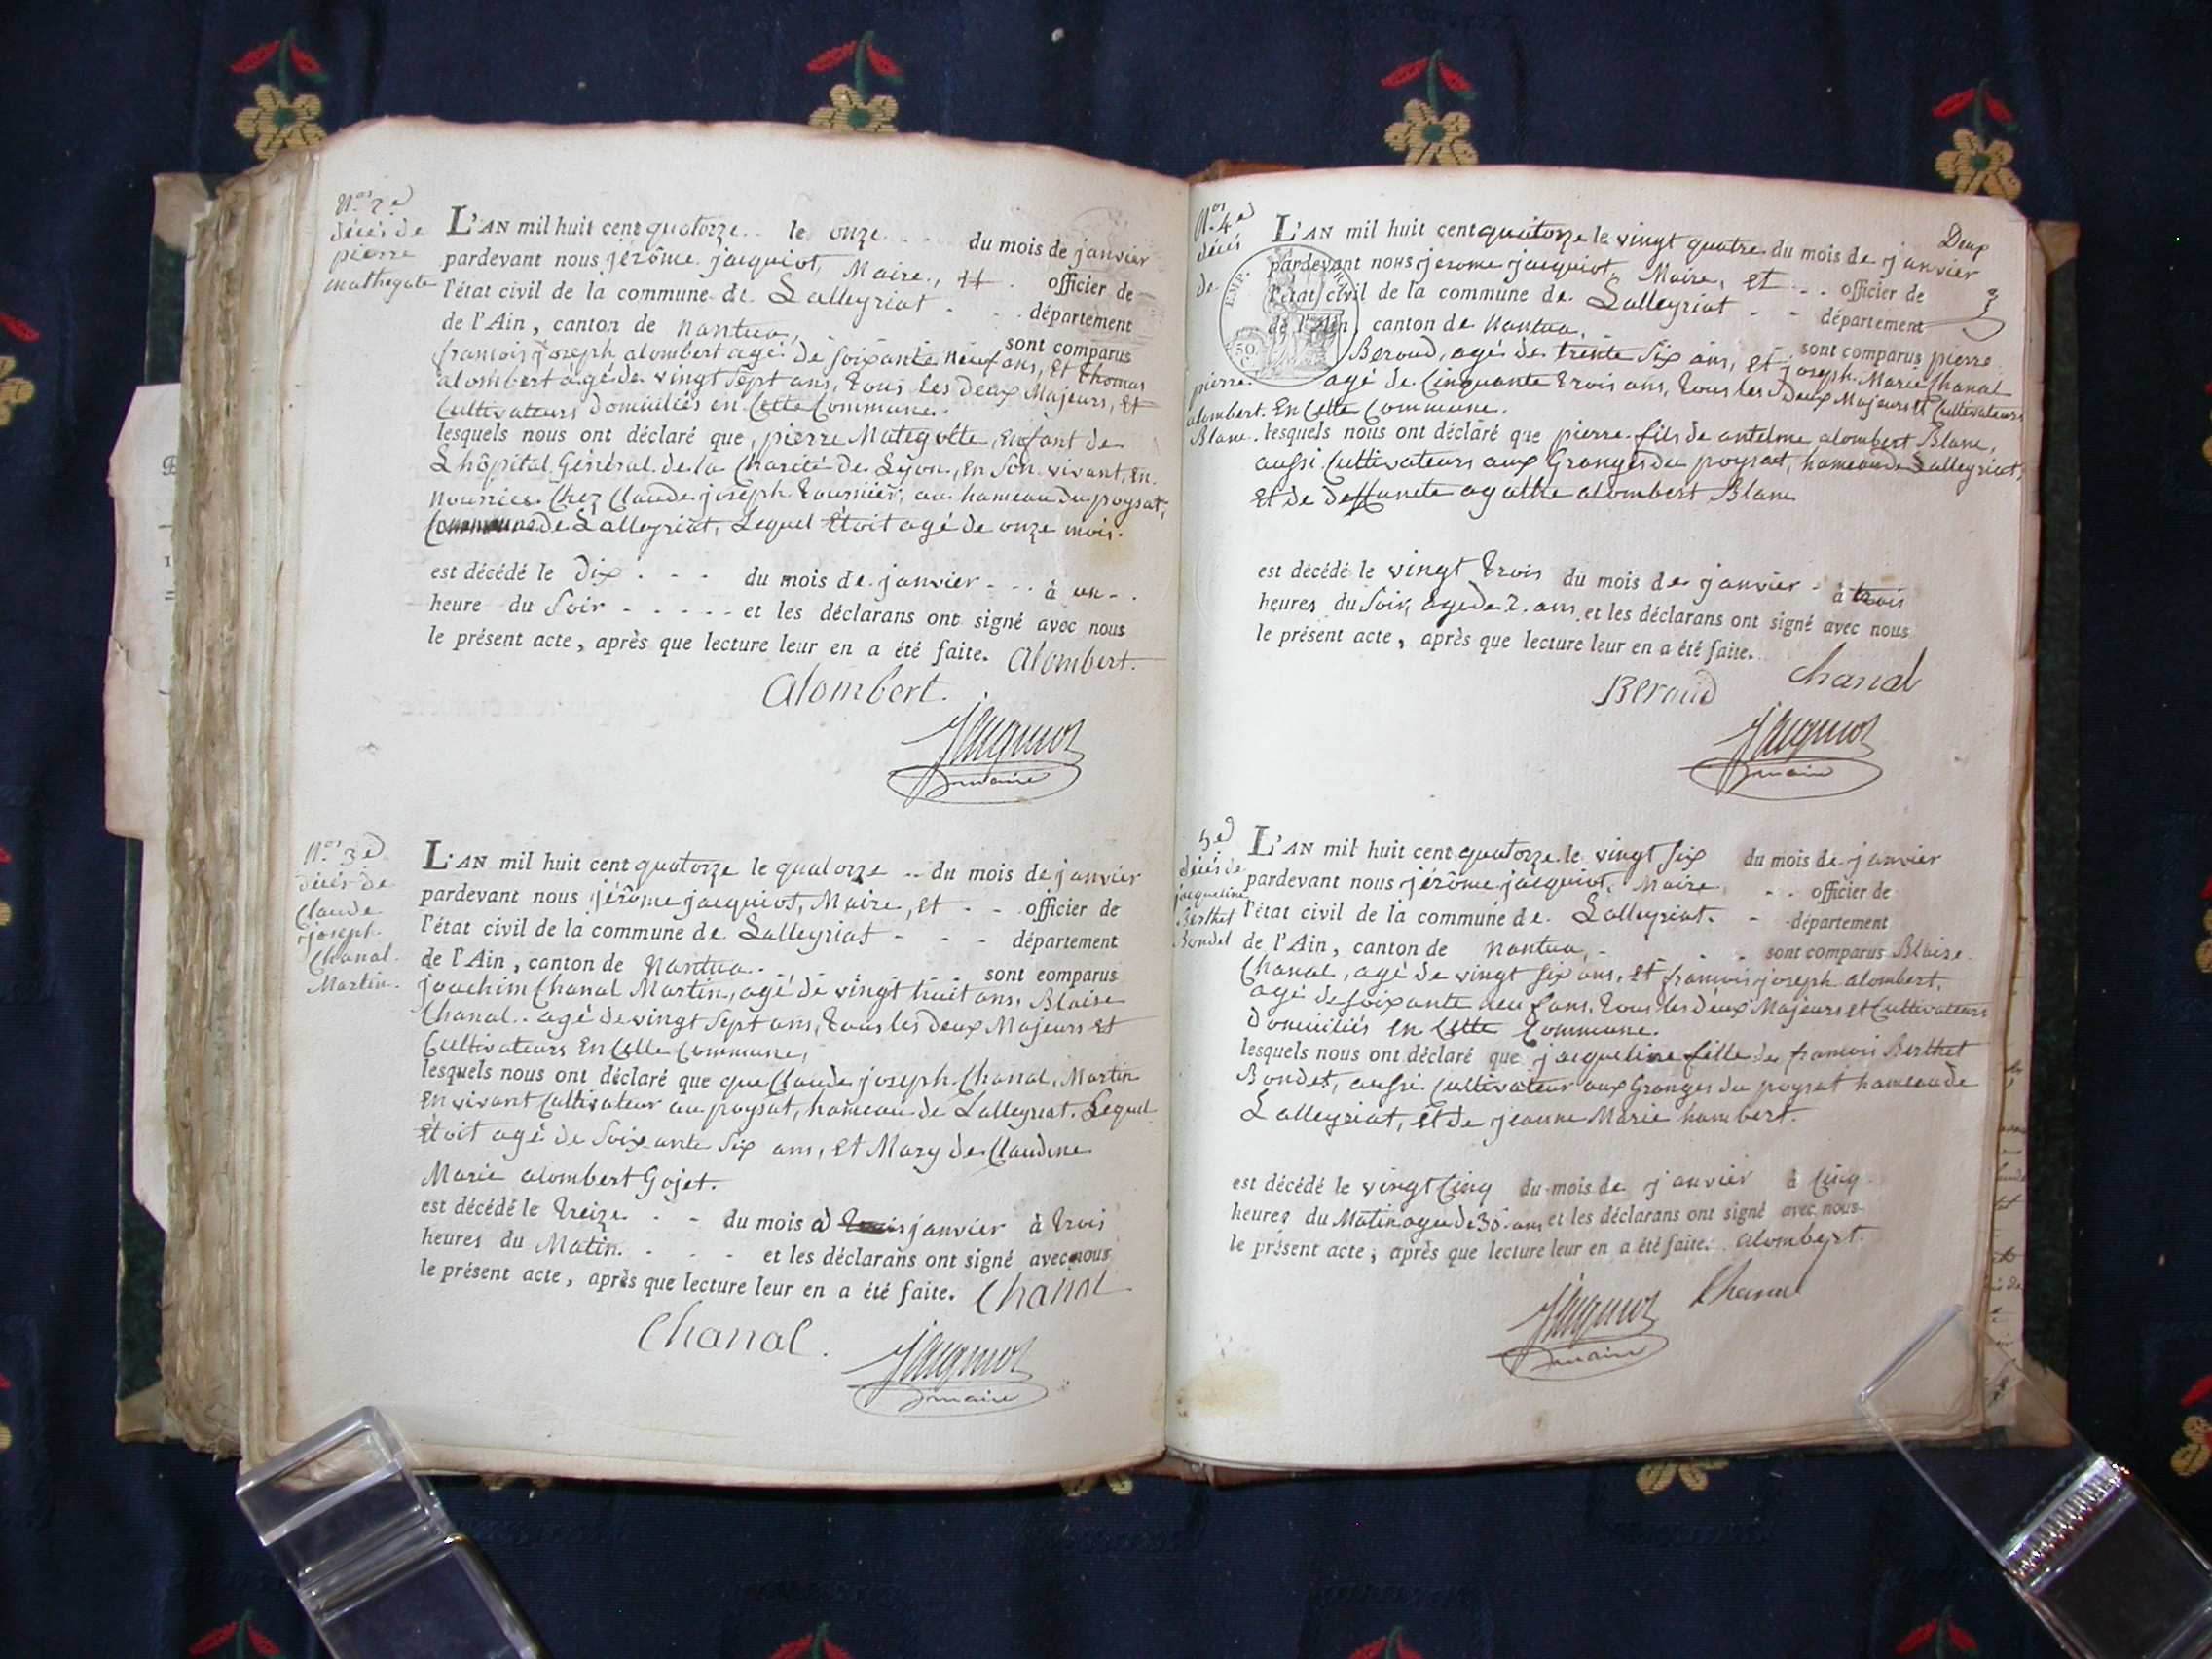 N.os 2.e
décés de
pierre
mathegote
L'AN mil huit cent quatorze le onze du mois de janvier
pardevant nous jérôme jacquiot, Maire, et officier de
l'état civil de la commune de Lalleyriat département
de l'Ain, canton de Nantua, sont comparus
francois joseph alombert agé de soixante neuf ans, et thomas
alombert agé de vingt sept ans, tous les deux Majeurs, et
Cultivateurs domiciliés en cette Commune.
lesquels nous ont déclaré que, pierre Mategotte, enfant de
L'hôpital Général de la Charité de Lyon, en son vivant, en
Nourrice chez Claude joseph tournier, au hameau du poysat,
Commune de Lalleyriat, Lequel étoit agé de onze mois.
est décédé le dix du mois de janvier à un
heure du soir et les déclarans ont signé avec nous
le présent acte, après que lecture leur en a été faite. alombert.
alombert.
jacquiot
maire
N.os 3.e
décés de
Claude
joseph
Chanal
Martin.
L'AN mil huit cent quatorze le quatorze du mois de janvier
pardevant nous jérôme jacquiot, Maire, et officier de
l'état civil de la commune de Lalleyriat département
de l'Ain, canton de Nantua. sont comparus
joachim Chanal Martin, agé de vingt huit ans, Blaise
Chanal agé de vingt sept ans, tous les deux Majeurs et
Cultivateurs en cette Commune,
lesquels nous ont déclaré que que Claude joseph Chanal Martin
en vivant Cultivateur au poysat, hameau de Lalleyriat. Lequel
étoit agé de soixante six ans, et Mary de Claudine
Marie alombert Gojet.
est décédé le treize du mois d janvier à trois
heures du Matin. et les déclarans ont signé avec nous
le présent acte, après que lecture leur en a été faite. Chanal
Chanal.
jacquiot
maire
Deux
N.os 4.e
décés
de
pierre
alombert
Blanc.
EMP.
50.
L'AN mil huit cent quatorze le vingt quatre du mois de janvier
pardevant nous jerome jacquiot, Maire, et officier de
l'état civil de la commune de Lalleyriat département
de l'Ain, canton de Nantua, sont comparus pierre
Beroud, agé de trente six ans, et joseph Marie Chanal
agé de Cinquante trois ans, tous les deux Majeurs et Cultivateurs
En cette Commune.
lesquels nous ont déclaré que pierre fils de antelme alombert Blanc,
aussi Cultivateurs aux Granges du poysat, hameau de Lalleyriat,
et de deffuncte agathe alombert Blanc
est décédé le vingt trois du mois de janvier à trois
heures du soir, agé de 2. ans et les déclarans ont signé avec nous
le présent acte, après que lecture leur en a été faite.
Beroud Chanal
jacquiot
maire
5.e
décés de
jacqueline
Berthet
Bondet
L'AN mil huit cent quatorze le vingt six du mois de janvier
pardevant nous jérôme jacquiot, Maire officier de
l'état civil de la commune de Lalleyriat. département
de l'Ain, canton de Nantua, sont comparus Blaise
Chanal, agé de vingt six ans, et francois joseph alombert,
agé de soixante neuf ans, tous les deux Majeurs et Cultivateurs
domiciliés en cette Commune.
lesquels nous ont déclaré que jacqueline fille de francois Berthet
Bondet, aussi Cultivateur aux Granges du poysat hameau de
Lalleyriat, et de jeanne Marie hambert.
est décédé le vingt Cinq du mois de janvier à Cinq
heures du Matin agée de 36 ans et les déclarans ont signé avec nous
le présent acte, après que lecture leur en a été faite. alombert.
Chanal
jacquiot
maire